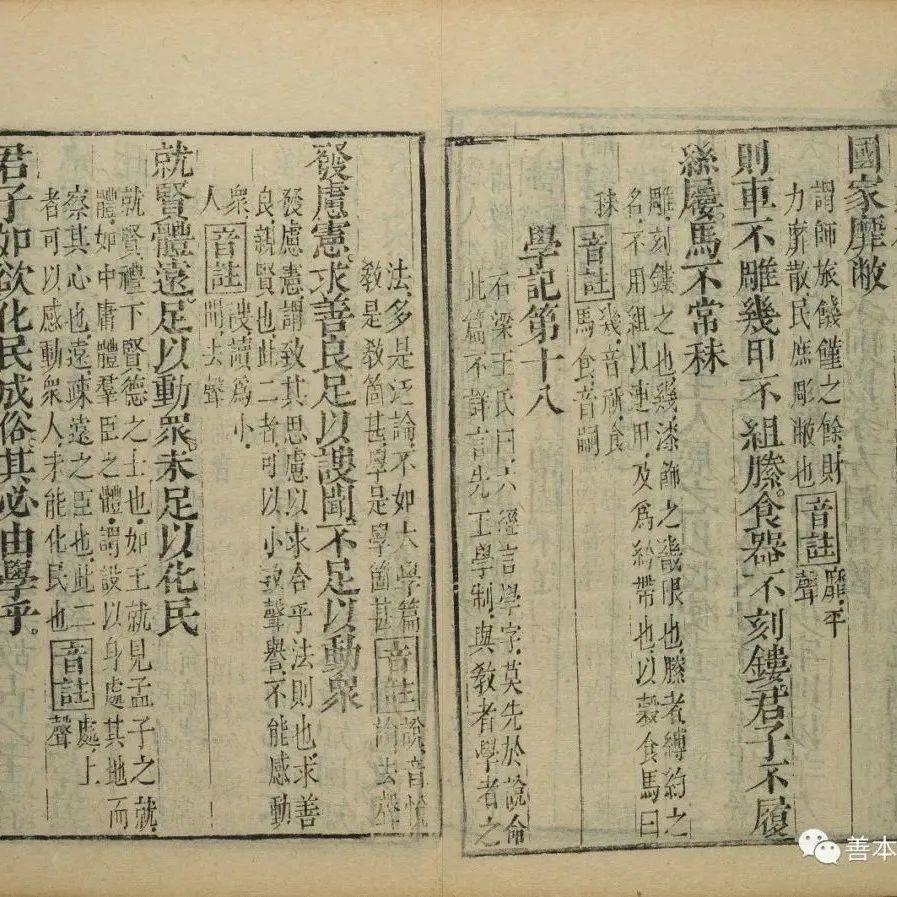 國家靡敝
謂師旅饑饉之餘,財
力靡散民庶彫敝也 音註 靡,平聲
則車不雕幾甲不組縢。食器不刻鏤。君子不履
絲屨。馬不常秣
雕,刻鏤之也幾漆飾之畿限也,縢者,縛約之
名,不用組以連用,及爲紟帶也,以穀食馬曰
秣 音註 幾,音祈食馬食音嗣
學記第十八
石梁王氏曰,六經言學字,莫先於說命
此篇不詳言先王學制,與教者學者之
法,多是泛論,不如大學篇
教是教箇甚,學是學箇甚 音註 說,音悅論,去聲
發慮憲,求善良,足以謏聞,不足以動衆
發慮憲,謂致其思慮,以求合乎法則也,求善
良,親賢也,此二者,可以小致聲譽,不能感動
衆人 音註 謏,讀爲小聞,去聲
就賢體遠,足以動衆,未足以化民
就賢,禮下賢德之士也,如王就見孟子之就,
體,如中庸體羣臣之體,謂設以身處其地,而
察其心也,遠,疎遠之臣也,此二
者可以感動衆人,未能化民也 音註 處,上聲
君子如欲化民成俗,其必由學乎。
善本